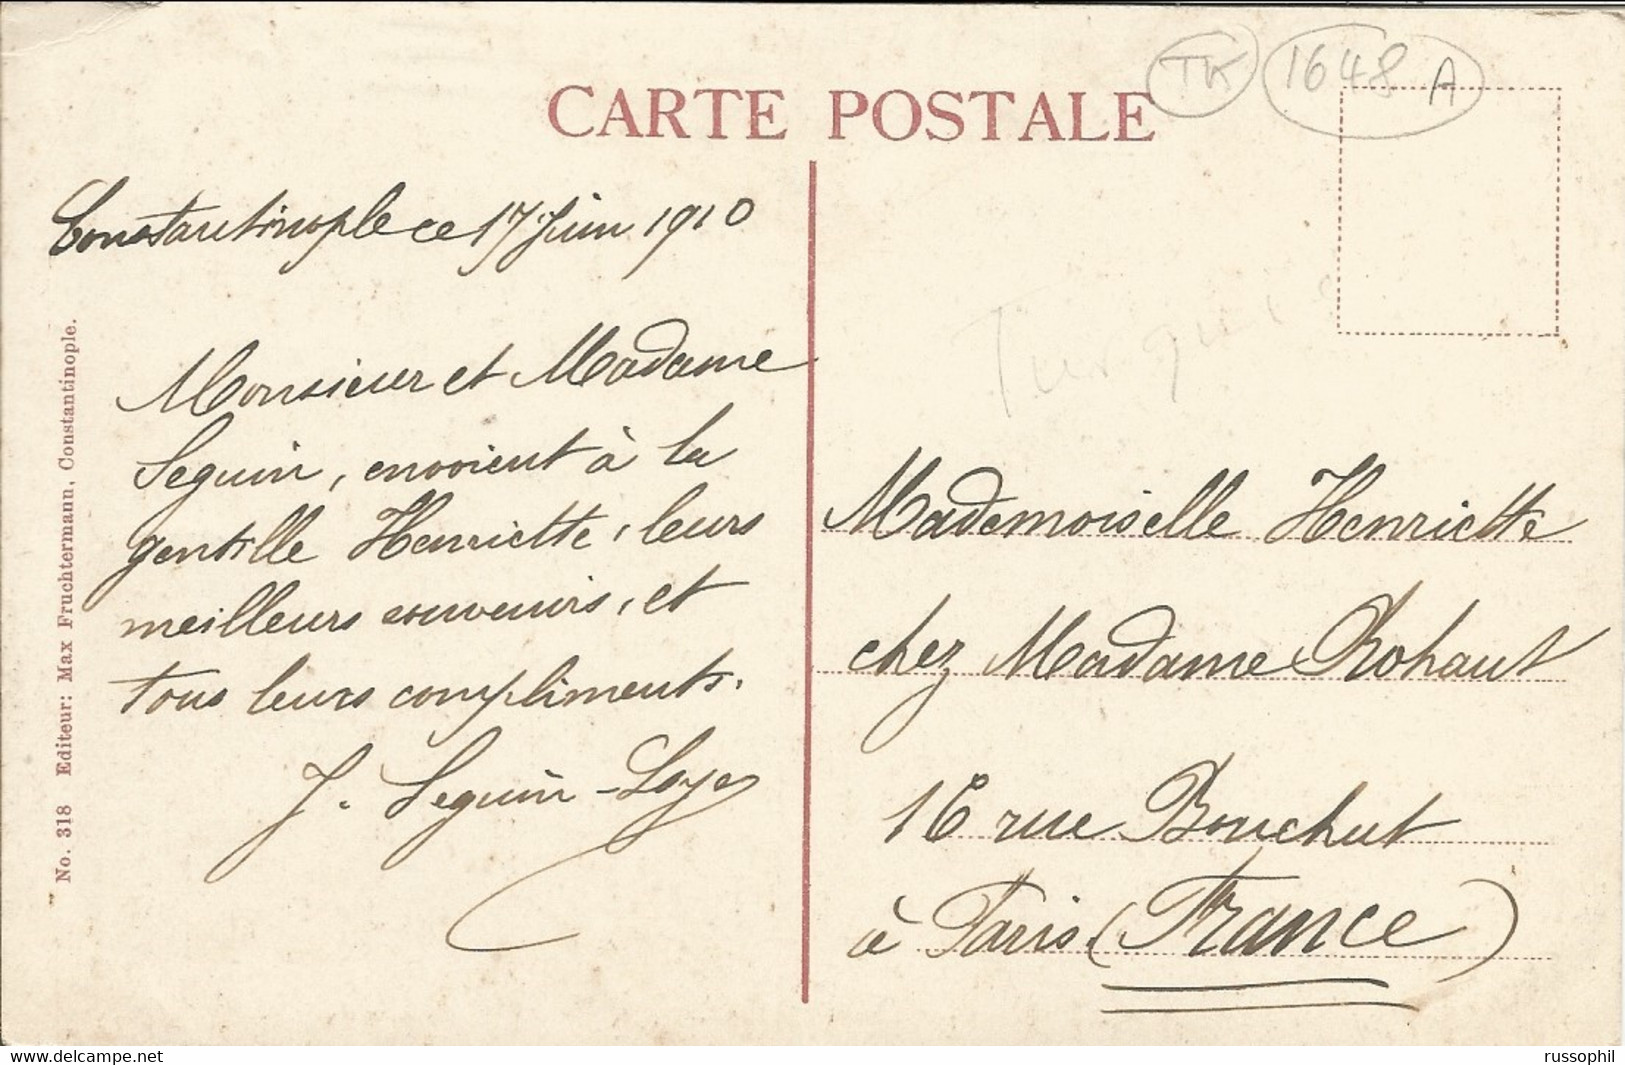 TK 1648 A
CARTE POSTALE
Constantinople ce 17 Juin 1910
Turquie
Monsieur et Madame
Seguin, envoient à la
gentille Henriette, leurs
meilleurs souvenirs, et
tous leurs compliments.
J. Seguin-Loye
Mademoiselle Henriette
chez Madame Rohaut
16 rue Bouchut
à Paris. (France)
No. 318 Editeur: Max Fruchtermann, Constantinople.
https://www.delcampe.net
russophil